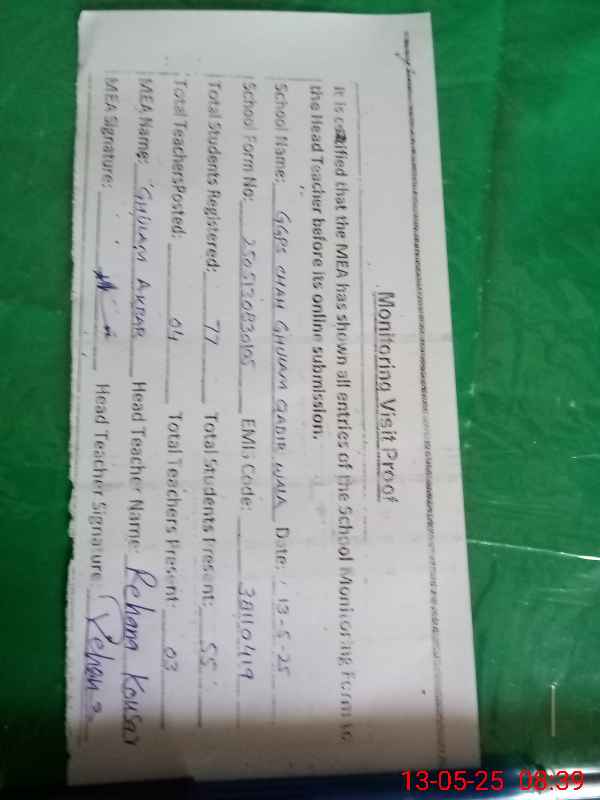 Monitoring Visit Proof
It is certified that the MEA has shown all entries of the School Monitoring Form to
the Head Teacher before its online submission.
School Name: GGPS CHAH GHULAM QADIR WALA Date: 13-5-25
School Form No: EMIS Code: 38110419
Total Students Registered: 77 Total Students Present: 55
Total TeachersPosted: 04 Total Teachers Present: 03
MEA Name: GHULAM AKBAR Head Teacher Name: Rehana Kousar
MEA Signature: Head Teacher Signature: Rehana
13-05-25 08:39